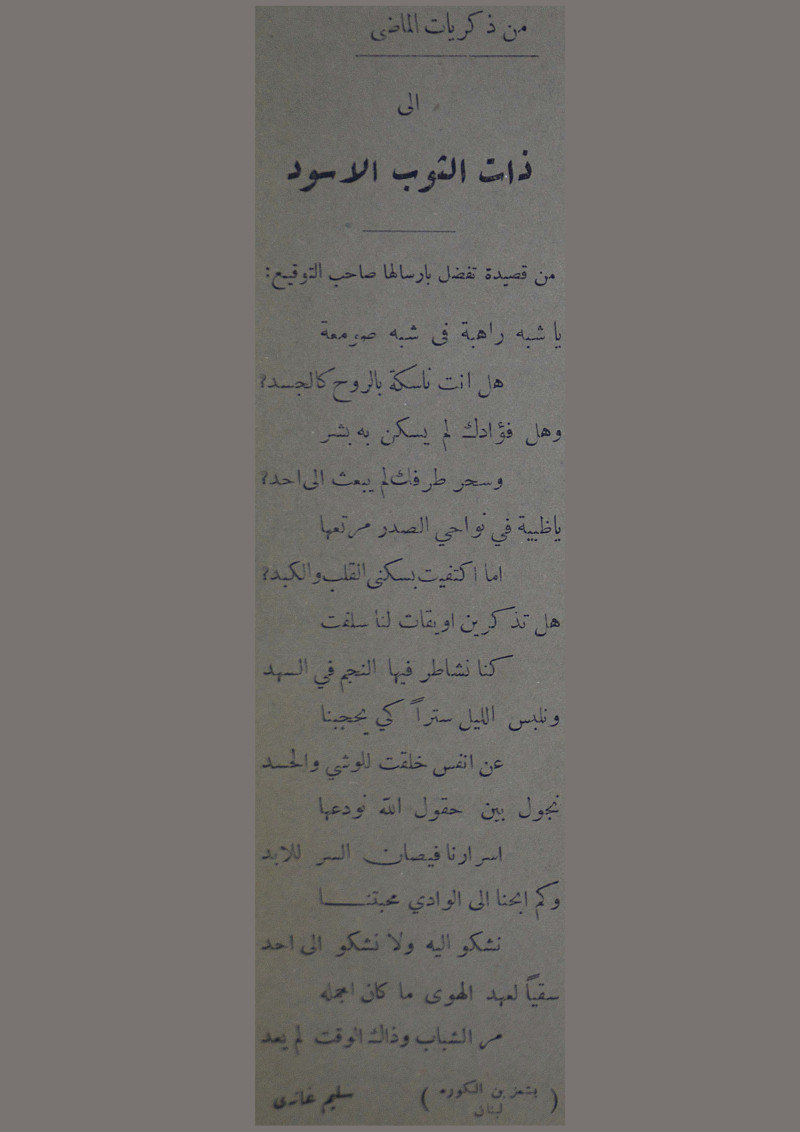 من ذكريات الماضى
الى
ذات الثوب الاسود
من قصيدة تفضل بارسالها صاحب التوقيع:
يا شبه راهبة فى شبه صومعة
هل انت ناسكة بالروح كالجسد؟
وهل فؤادك لم يسكن به بشر
وسحر طرفك لم يبعث الى احد؟
ياظبية في نواحي الصدر مرتعها
اما اكتفيت بسكنى القلب والكبد؟
هل تذكرين اويقات لنا سلفت
كنا نشاطر فيها النجم في السهد
ونلبس الليل ستراً كي يحجبنا
عن انفس خلقت للوشي والحسد
نجول بين حقول الله نودعها
اسرارنا فيصان السر للابد
وكم ابحنا الى الوادي محبتنـــا
نشكو اليه ولا نشكو الى احد
سقياً لعهد الهوى ما كان اجمله
مر الشباب وذاك الوقت لم يعد
( بشمزين الكوره لبنان ) سليم غازى